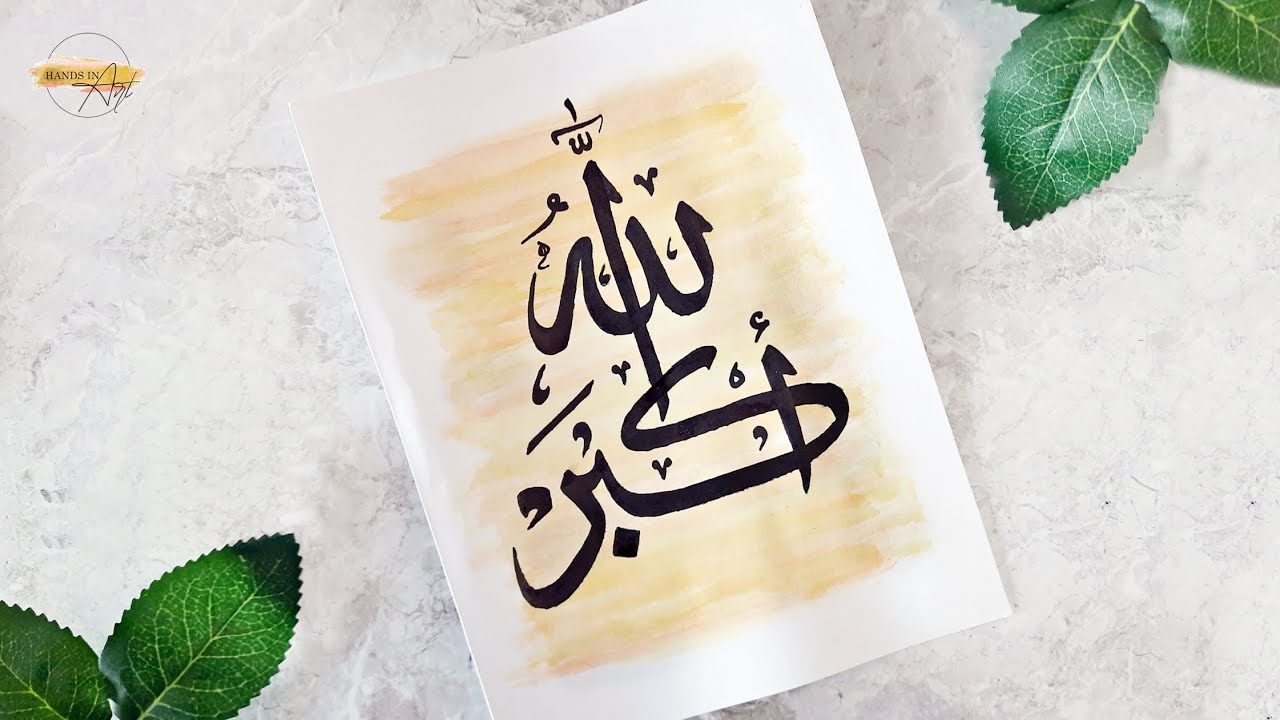 HANDS IN
Art
اللَّهُ
أَكْبَر